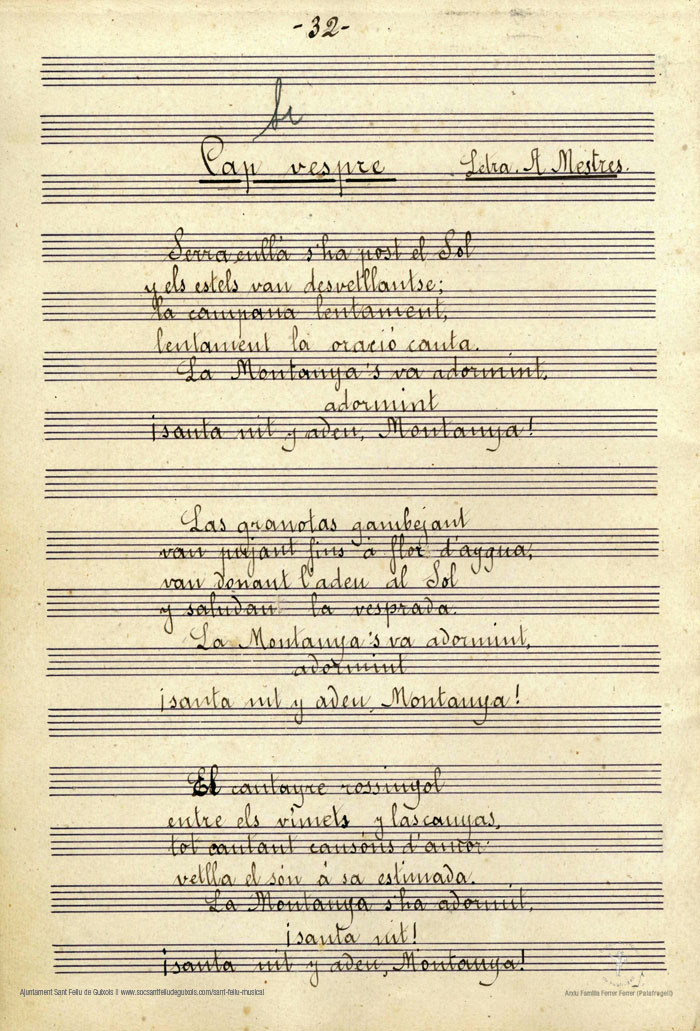 -32-
Si
Cap vespre
Letra. A Mestres.
Serra enllà s'ha post el Sol
y els estels van desvetllantse;
la campana lentament,
lentament la oració canta.
La Montanya's va adormint,
adormint
¡santa nit y adeu, Montanya!
Las granotas gambejant
van pujant fins á flor d'aygua,
van donant l'adeu al Sol
y saludan la vesprada.
La Montanya's va adormint,
adormint
¡santa nit y adeu, Montanya!
El cantayre rossinyol
entre els vímets y lascanyas,
tot cantant cansóns d'amor
vetlla el són á sa estimada.
La Montanya s'ha adormit,
¡santa nit!
¡santa nit y adeu, Montanya!
Ajuntament Sant Feliu de Guíxols || www.socsantfeliudeguixols.com/sant-feliu-musical
Arxiu Família Ferrer Ferrer (Palafrugell)